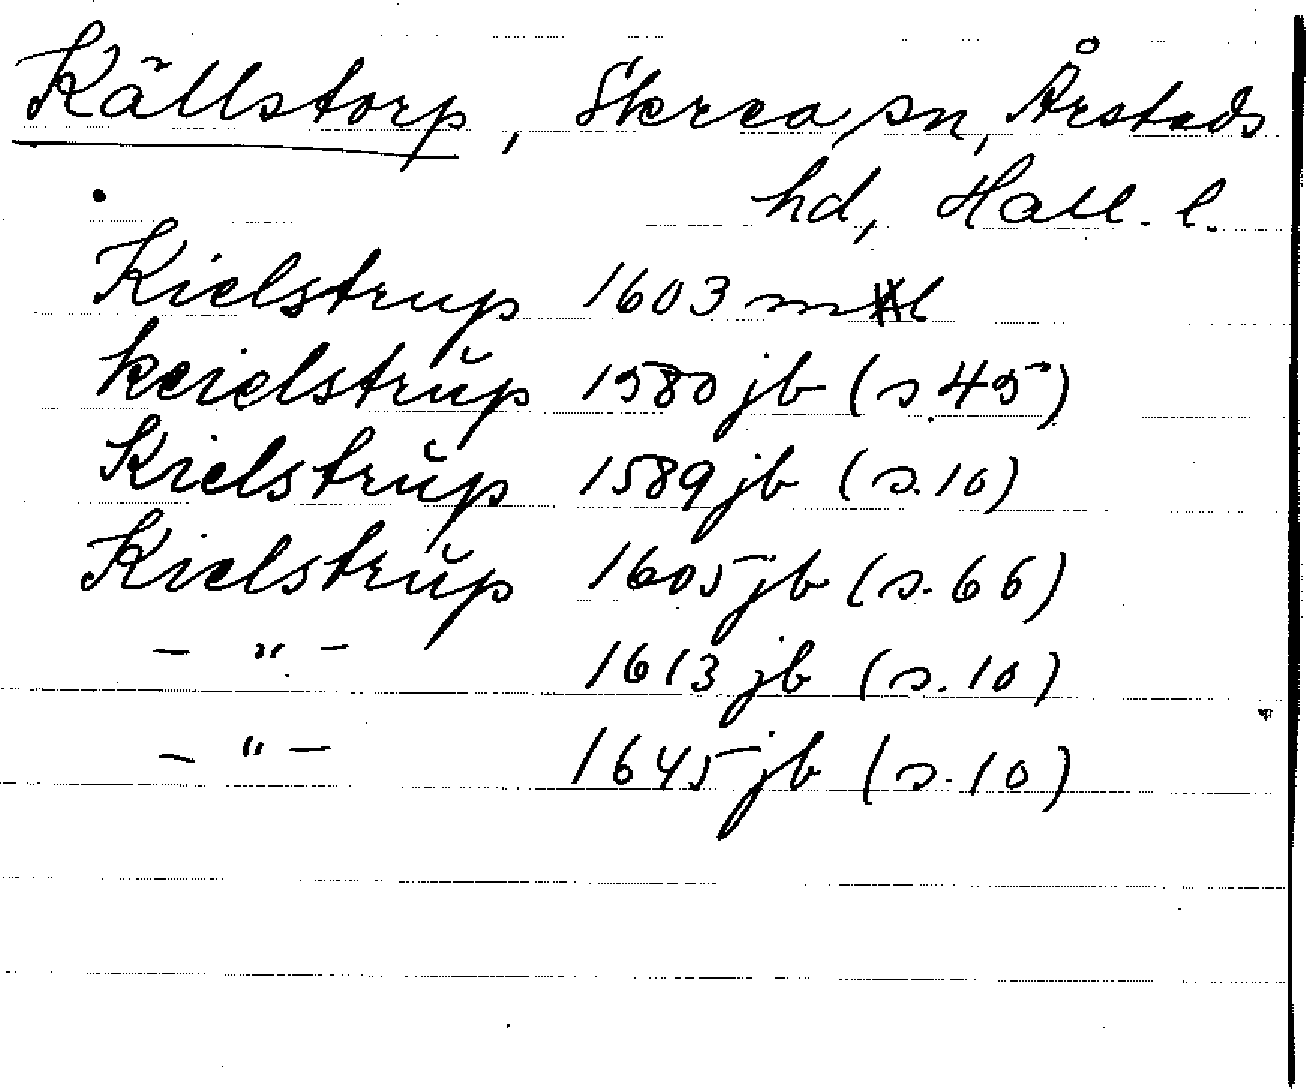 Källstorp, Skrea sn, Årstads
hd, Hall. l.
Kielstrup 1603 ml
keielstrŭp 1580 jb (s. 45)
Kielstrŭp 1589 jb (s. 10)
Kielstrŭp 1605 jb (s. 66)
– " – 1613 jb (s. 10)
– " – 1645 jb (s. 10)